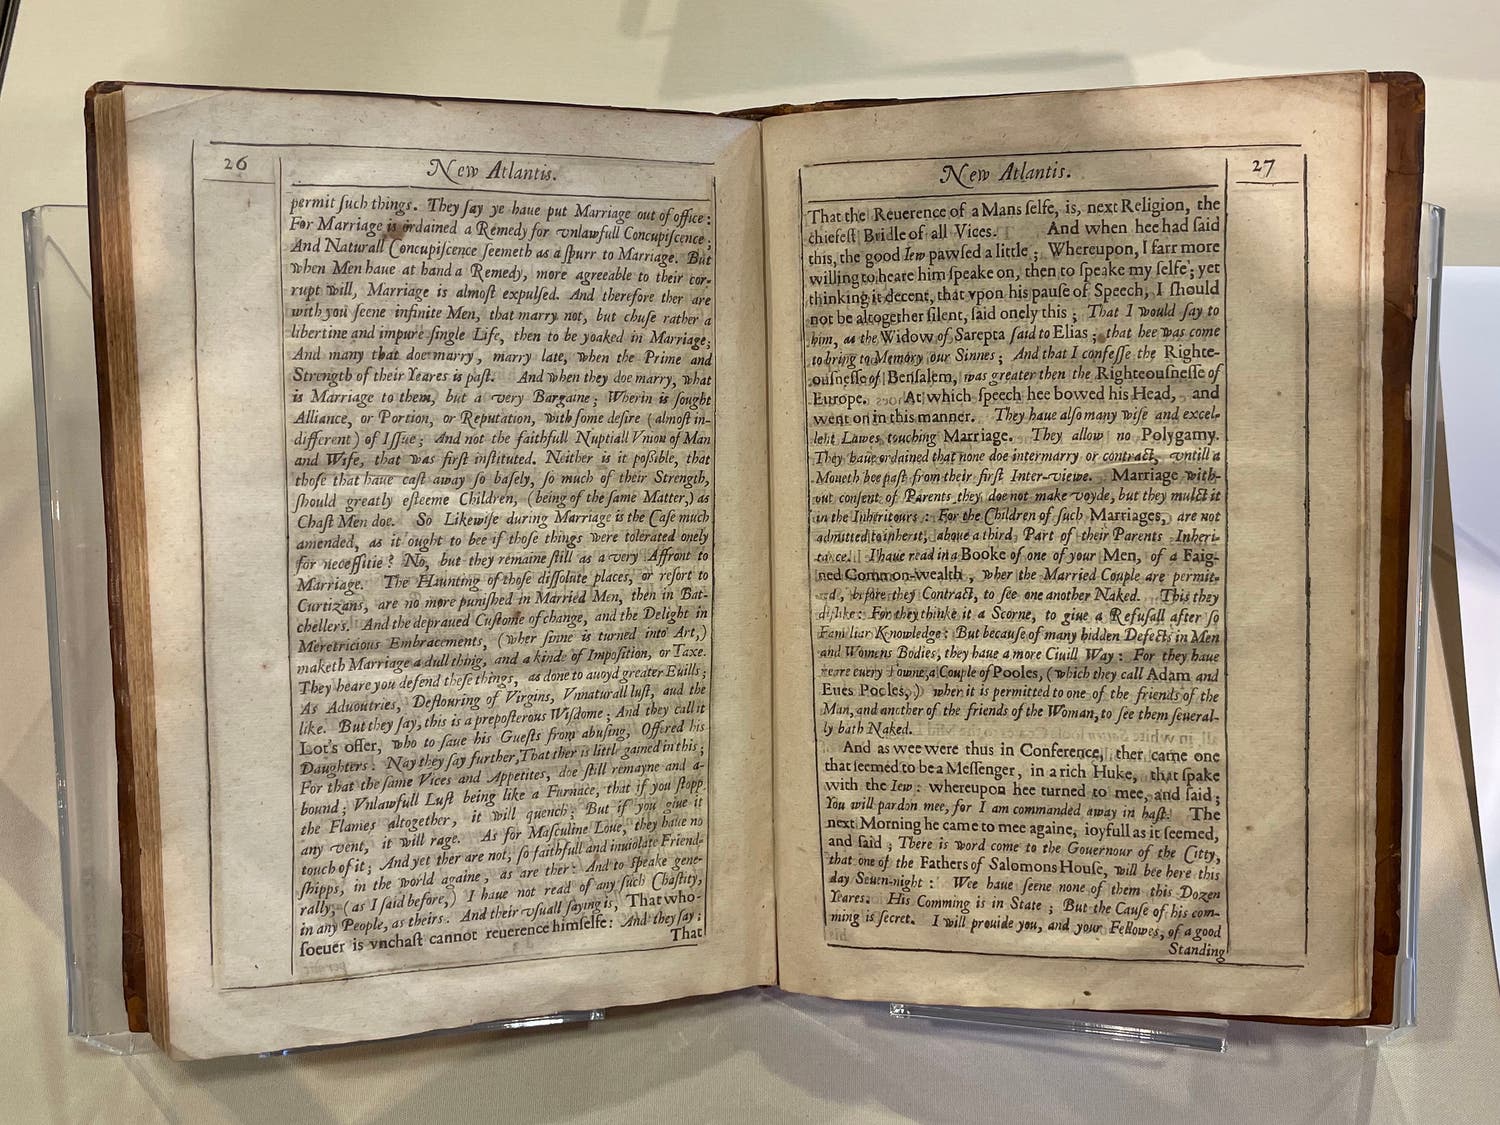 26
New Atlantis.
permit ſuch things. They ſay ye haue put Marriage out of office:
For Marriage is ordained a Remedy for vnlawfull Concupiſcence;
And Naturall Concupiſcence ſeemeth as a ſpurr to Marriage. But
when Men haue at hand a Remedy, more agreeable to their cor-
rupt will, Marriage is almoſt expulſed. And therefore ther are
with you ſeene infinite Men, that marry not, but chuſe rather a
libertine and impure ſingle Life, then to be yoaked in Marriage;
And many that doe marry, marry late, when the Prime and
Strength of their Yeares is paſt. And when they doe marry, what
is Marriage to them, but a very Bargaine; Wherin is ſought
Alliance, or Portion, or Reputation, with ſome deſire (almoſt in-
different) of Iſſue; And not the faithfull Nuptiall Vnion of Man
and Wife, that was firſt inſtituted. Neither is it poßible, that
thoſe that haue caſt away ſo baſely, ſo much of their Strength,
ſhould greatly eſteeme Children, (being of the ſame Matter,) as
Chaſt Men doe. So Likewiſe during Marriage is the Caſe much
amended, as it ought to bee if thoſe things were tolerated onely
for neceſſitie? No, but they remaine ſtill as a very Affront to
Marriage. The Haunting of thoſe diſſolute places, or reſort to
Curtizans, are no more puniſhed in Married Men, then in Bat-
chellers. And the depraued Cuſtome of change, and the Delight in
Meretricious Embracements, (wher ſinne is turned into Art,)
maketh Marriage a dull thing, and a kinde of Impoſition, or Taxe.
They heare you defend theſe things, as done to auoyd greater Euills;
As Aduoutries, Deflouring of Virgins, Vnnaturall luſt, and the
like. But they ſay, this is a prepoſterous Wiſdome; And they call it
Lot's offer, who to ſaue his Gueſts from abuſing, Offered his
Daughters: Nay they ſay further, That ther is little gained in this;
For that the ſame Vices and Appetites, doe ſtill remayne and a-
bound; Vnlawfull Luſt being like a Furnace, that if you ſtopp
the Flames altogether, it will quench; But if you giue it
any vent, it will rage. As for Maſculine Loue, they haue no
touch of it; And yet ther are not, ſo faithfull and inuiolate Friend-
ſhipps, in the world againe, as are ther: And to ſpeake gene-
rally, (as I ſaid before,) I haue not read of any ſuch Chaſtity,
in any People, as theirs. And their vſuall ſaying is, That who-
ſoeuer is vnchaſt cannot reuerence himſelfe: And they ſay;
That
New Atlantis.
27
That the Reuerence of a Mans ſelfe, is, next Religion, the
chiefeſt Bridle of all Vices. And when hee had ſaid
this, the good Iew pawſed a little; Whereupon, I farr more
willing to heare him ſpeake on, then to ſpeake my ſelfe; yet
thinking it decent, that vpon his pauſe of Speech, I ſhould
not be altogether ſilent, ſaid onely this; That I would ſay to
him, as the Widow of Sarepta ſaid to Elias; that hee was come
to bring to Memory our Sinnes; And that I confeſſe the Righte-
ouſneſſe of Benſalem, was greater then the Righteouſneſſe of
Europe. At which ſpeech hee bowed his Head, and
went on in this manner. They haue alſo many wiſe and excel-
lent Lawes touching Marriage. They allow no Polygamy.
They haue ordained that none doe intermarry or contract, vntill a
Moneth bee paſt from their firſt Inter-viewe. Marriage with-
out conſent of Parents they doe not make voyde, but they mulct it
in the Inheritours: For the Children of ſuch Marriages, are not
admitted to inherit, aboue a third Part of their Parents Inheri-
tance. I haue read in a Booke of one of your Men, of a Faig-
ned Common-wealth, wher the Married Couple are permit-
ted, before they Contract, to ſee one another Naked. This they
diſlike: For they thinke it a Scorne, to giue a Refuſall after ſo
Familiar Knowledge: But becauſe of many hidden Defects in Men
and Womens Bodies, they haue a more Ciuill Way: For they haue
neare euery Towne, a Couple of Pooles, (which they call Adam and
Eues Pooles,) wher it is permitted to one of the friends of the
Man, and another of the friends of the Woman, to ſee them ſeueral-
ly bath Naked.
And as wee were thus in Conference, ther came one
that ſeemed to be a Meſſenger, in a rich Huke, that ſpake
with the Iew: whereupon hee turned to mee, and ſaid;
You will pardon mee, for I am commanded away in haſt. The
next Morning he came to mee againe, ioyfull as it ſeemed,
and ſaid; There is word come to the Gouernour of the Citty,
that one of the Fathers of Salomons Houſe, will bee here this
day Seuen-night: Wee haue ſeene none of them this Dozen
Yeares. His Comming is in State; But the Cauſe of his com-
ming is ſecret. I will prouide you, and your Fellowes, of a good
Standing